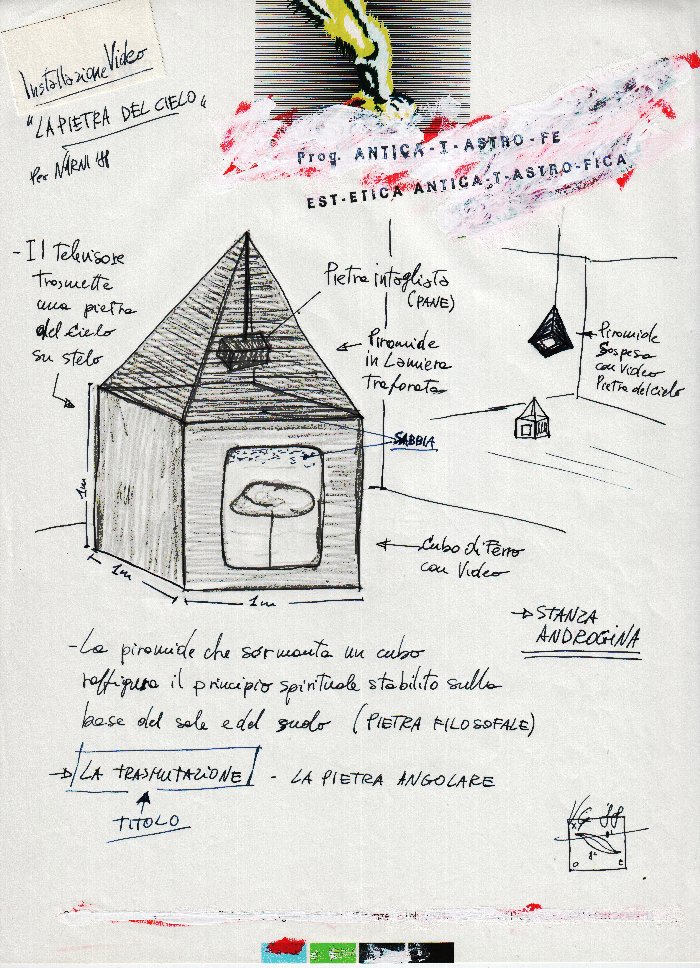 Installazione Video
"LA PIETRA DEL CIELO"
Per NARNI 88
Prog. ANTICA-T-ASTRO-FE
EST-ETICA ANTICA T-ASTRO-FICA
- Il Televisore
trasmette
una pietra
del cielo
su stelo
Pietra intagliata
(PANE)
Piramide
in Lamiera
traforata
Piramide
Sospesa
con Video
Pietra del cielo
SABBIA
1m
1m
1m
Cubo di Ferro
con Video
STANZA
ANDROGINA
- La piramide che sormonta un cubo
raffigura il principio spirituale stabilito sulla
base del sale e del zolfo (PIETRA FILOSOFALE)
LA TRASMUTAZIONE - LA PIETRA ANGOLARE
TITOLO